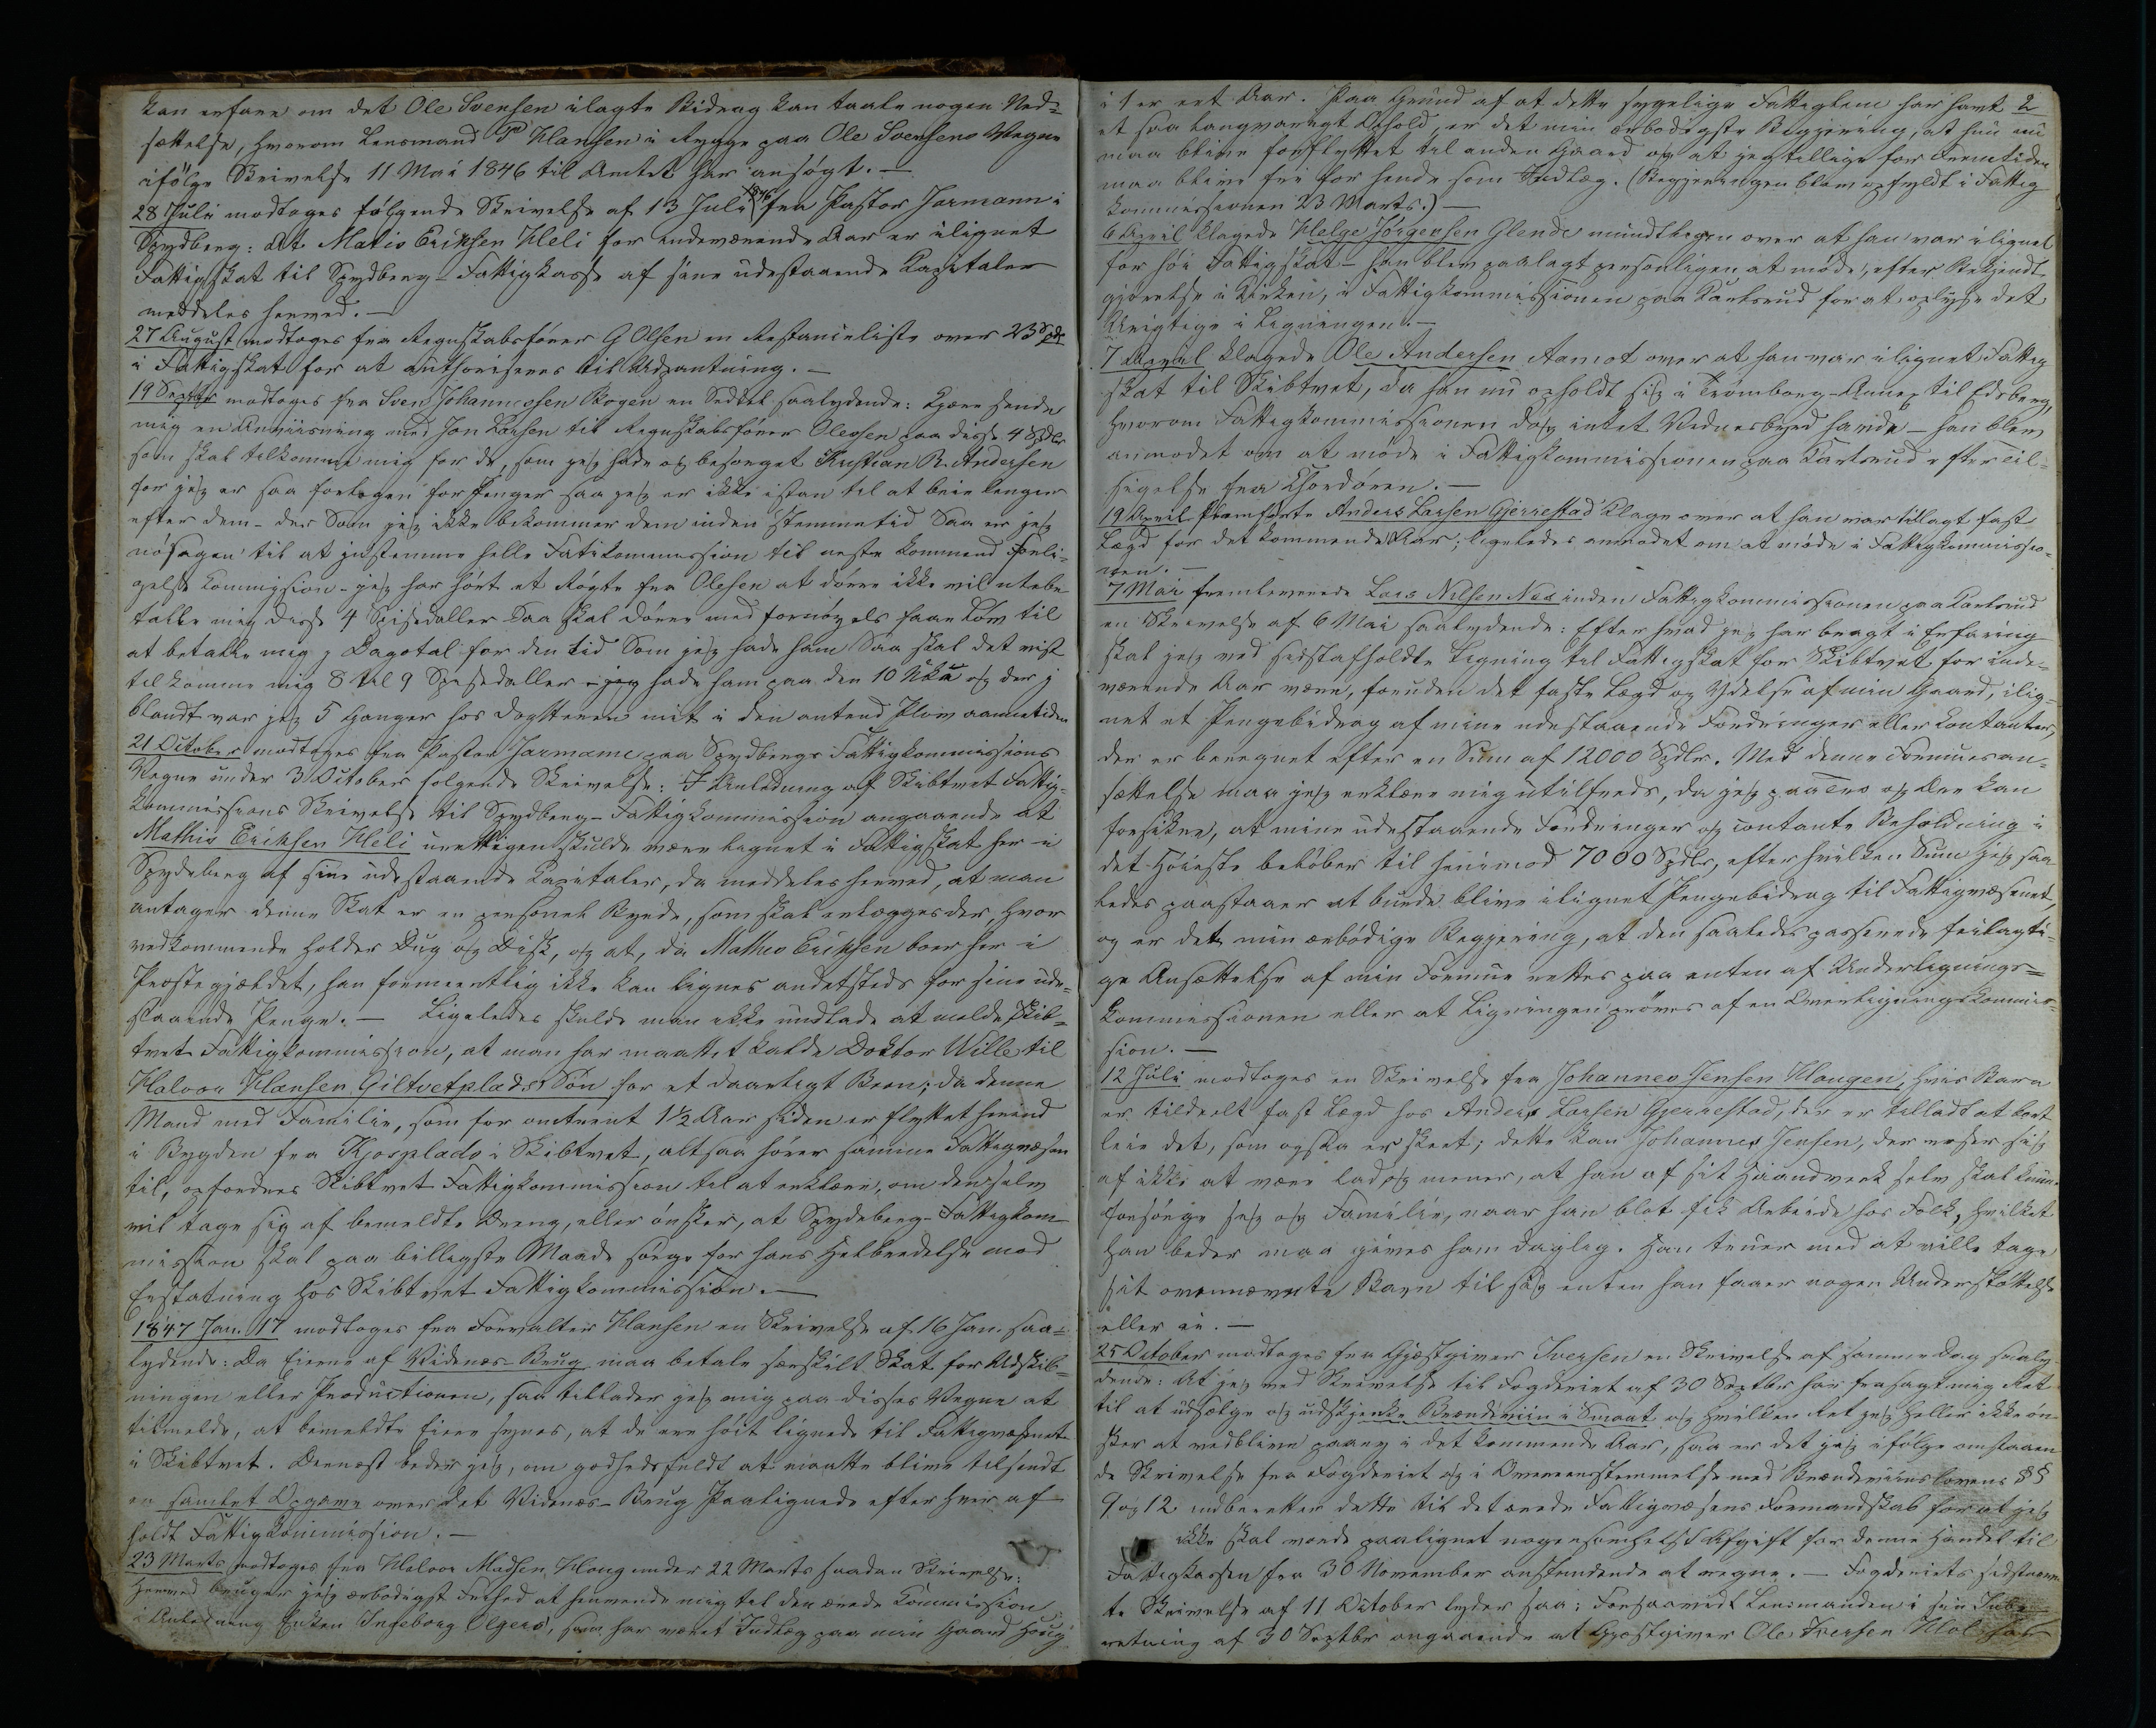 kan erfare om det Ole Svensen ilagte Bidrag kan taale nogen Ned=
sættelse, hvorom Lensmand P Hansen i Rygge paa Ole Svensens Vegne
ifölge Skrivelse 11 Mai 1846 til Amtet har ansögt. —
28 Juli modtoges fölgende Skrivelse af 13 Juli 1846 fra Pastor Jarmann i
Spydberg: At Matis Eriksen Heli for indeværende Aar er ilignet
Fattigskat til Spydberg-Fattigkasse af sine udestaaende Kapitaler
meddeles herved. —
27 August modtoges fra Regnskabsförer G Olsen en Restanceliste over 23 Spdr
i Fattigskat for at authoriseres til Udpantning. —
19 Septbr modtoges fra Sven Johannessen Skogen en Seddel saalydende: Kjære sende
mig en Anviisning med Jon Larsen til Regnskabsförer Olessen paa disse 4 Spdlr
som skal tilkomme mig for de, som jeg hade og besörget Kristian R. Andersen
for jeg er saa forlegen for Penger saa jeg er ikke istan til at beie lenger
efter dem - der Som jeg ikke bekommer dem inden stemmetid Saa er jeg
nösagen til at instemme helle Fatikommission til neste kommend Forli-
gelse Kommission - jeg har hört et Rögte fra Olesen at dörre ikke vil utebe
talle mig disse 4 Spisedaller Saa skal dörre med fornöyels faae Lov til
at betalle mig i Dagetal for den tid Som jeg hade ham Saa skal det vist
tilkomme mig 8 til 9 Spisedaller jeg hade ham paa den 10 Uka og der i
blandt var jeg 5 Ganger hos dogteren mit i den antend Plov aannetiden
21 October modtoges fra Pastor Jarmann paa Spydbergs Fattigkommissions
Vegne under 3 October folgende Skrivelse: I Anledning af Skibtvet Fattig-
kommissions Skrivelse til Spydberg-Fattigkommission angaaende at
Mathis Eriksen Heli urettigen skulde være lignet i Fattigskat her i
Spydeberg af sine udestaaende Kapitaler, da meddeles herved, at man
antager denne Skat er en personel Byrde, som skal erlægges der, hvor
vedkommende holder Dug og Disk, og at, da Mathis Eriksen boer her i
Præstegjældet, han formeentlig ikke kan lignes andetsteds for sine ude-
staaende Penge. — Ligeledes skulde man ikke undlade at melde Skib=
tvet Fattigkommission, at man har maattet kalde Doktor Wille til
Halvor Hansen Giltvetplads's Sön for et daarligt Been; da denne
Mand med Familie, som for omtrent 1 1/2 Aar siden er flyttet herind
i Bygden fra Kjosplads i Skibtvet, altsaa hörer samme Fattigvæsen
til, opfordres Skibtvet Fattigkommission til at erklære, om den selv
vil tage sig af bemeldte Dreng, eller önsker, at Spydeberg-Fattigkom-
mission skal paa billigste Maade sörge for hans Helbredelse mod
Erstatning hos Skibtvet Fattigkommission. —
1847 Jan. 17 modtoges fra Forvalter Hansen en Skrivelse af 16 Jan. saa=
lydende: Da Eierne af Vidnæs-Brug maa betale særskilt Skat for Udskib-
ningen eller Productionen, saa tillader jeg mig paa disses Vegne at
tilmelde, at bemeldte Eiere synes, at de ere höit lignede til Fattigvæsenet
i Skibtvet. Dernæst beder jeg, om godhedsfuldt at maatte blive tilsendt
en samlet Opgave over det Vidnæs-Brug Paalignede efter hver af
holdt Fattigkommission. —
23 Marts modtoges fra Halvor Madsen Houg under 22 Marts saadan Skrivelse:
Herved bruger jeg ærbodigst Frihed at henvende mig til den ærede Commission
i Anledning Enken Ingeborg Olgers, som har været Indlæg paa min Gaard Houg
2
i 1 er eet Aar. Paa Grund af at dette sygelige Fattiglem har havt
et saa langvarigt Ophold, er det min ærbodigste Begjering, at hun nu
maa blive forflyttet til anden Gaard og at jeg tillige for Fremtiden
maa blive fri for hende som Indlæg. (Begjeringen blev opfyldt i Fattig
kommissionen 23 Marts.) —
6 April klagede Helge Jörgensen Glende mundtligen over at han var ilignet
for höi Fattigskat - han blev paalagt personligen at möde, efter Bekjendt
gjörelse i Kirken, i Fattigkommissionen paa Karlsrud for at oplyse det
Urigtige i Ligningen. —
7 April klagede Ole Andersen Aamot over at han var ilignet Fattig
skat til Skibtvet, da han nu opholdt sig i Trömborg-Annex til Edsberg,
hvorom Fattigkommissionen dog intet Vidnesbyrd havde - han blev
anmodet om at möde i Fattigkommissionen paa Karlsrud efter Til-
sigelse fra Chordören. —
19 April fremförte Anders Larsen Gjerrestad Klage over at han var tillagt fast
Lægd for det kommende Aar; ligeledes anmodet om at möde i Fattigkommissio-
nen. —
7 Mai fremleverede Lars Nilsen Næs inden Fattigkommissionen paa Karlsrud
en Skrivelse af 6 Mai saalydende: Efter hvad jeg har bragt i Erfaring
skal jeg ved sidstafholdte Ligning til Fattigskat for Skibtvet for inde-
værende Aar være, foruden det faste Lægd og Ydelse af min Gaard, ilig-
net et Pengebidrag af mine udestaaende Fordringer eller Contanter,
der er beregnet efter en Sum af 12000 Spdlr. Med denne Formuesan-
sættelse maa jeg erklære mig utilfreds, da jeg paa Tro og Ære kan
forsikre, at mine udestaaende Fordringer og contante Beholdning i
det Höieste belöber til henimod 7000 Spdlr, efter hvilken Sum jeg saa
ledes paastaaer at burde blive ilignet Pengebidrag til Fattigvæsenet,
og er det min ærbödige Begjering, at den saaledes passerede feilagti-
ge Ansættelse af min Formue rettes paa enten af Underlignings=
kommissionen eller at Ligningen pröves af en Overligningskommis-
sion. —
12 Juli modtoges en Skrivelse fra Johannes Jensen Haugen, hvis Barn
er tildeelt fast Lægd hos Anders Larsen Gjerrestad, der er tilladt at bort
leie det, som ogsaa er skeet; dette kan Johannes Jensen, der roser sig
af ikke at være lad og mener, at han af sit Haandværk selv skal kunne
forsörge sig og Familie, naar han blot fik Arbeide hos Folk, hvilket
han beder maa gives ham daglig. Han truer med at ville tage
sit ovennævnte Barn til sig enten han faaer nogen Understöttelse
eller ei. —
25 October modtoges fra Gjæstgiver Iversen en Skrivelse af samme Dag saaly
dende: At jeg ved Skrivelse til Fogderiet af 30 Septbr har frasagt mig Ret
til at udsælge og udskjenke Brændeviin i Smaat og hvilken Ret jeg heller ikke ön
sker at vedblive paany i det kommende Aar, saa er det jeg ifölge omstaaen
de Skrivelse fra Fogderiet og i Overeensstemmelse med Brændeviinslovens §§
9 og 12 indberetter dette til det ærede Fattigvæsens Formandskab for at jeg
ikke skal vorde paalignet nogensomhelst Afgift for denne Handel til
Fattigkassen fra 30 November anstundende at regne. — Fogderiets sidstnævn
te Skrivelse af 11 October lyder saa: Forsaavidt Lensmanden i sin Indbe
retning af 30 Septbr angaaende at Gjæstgiver Ole Iversen Hol har